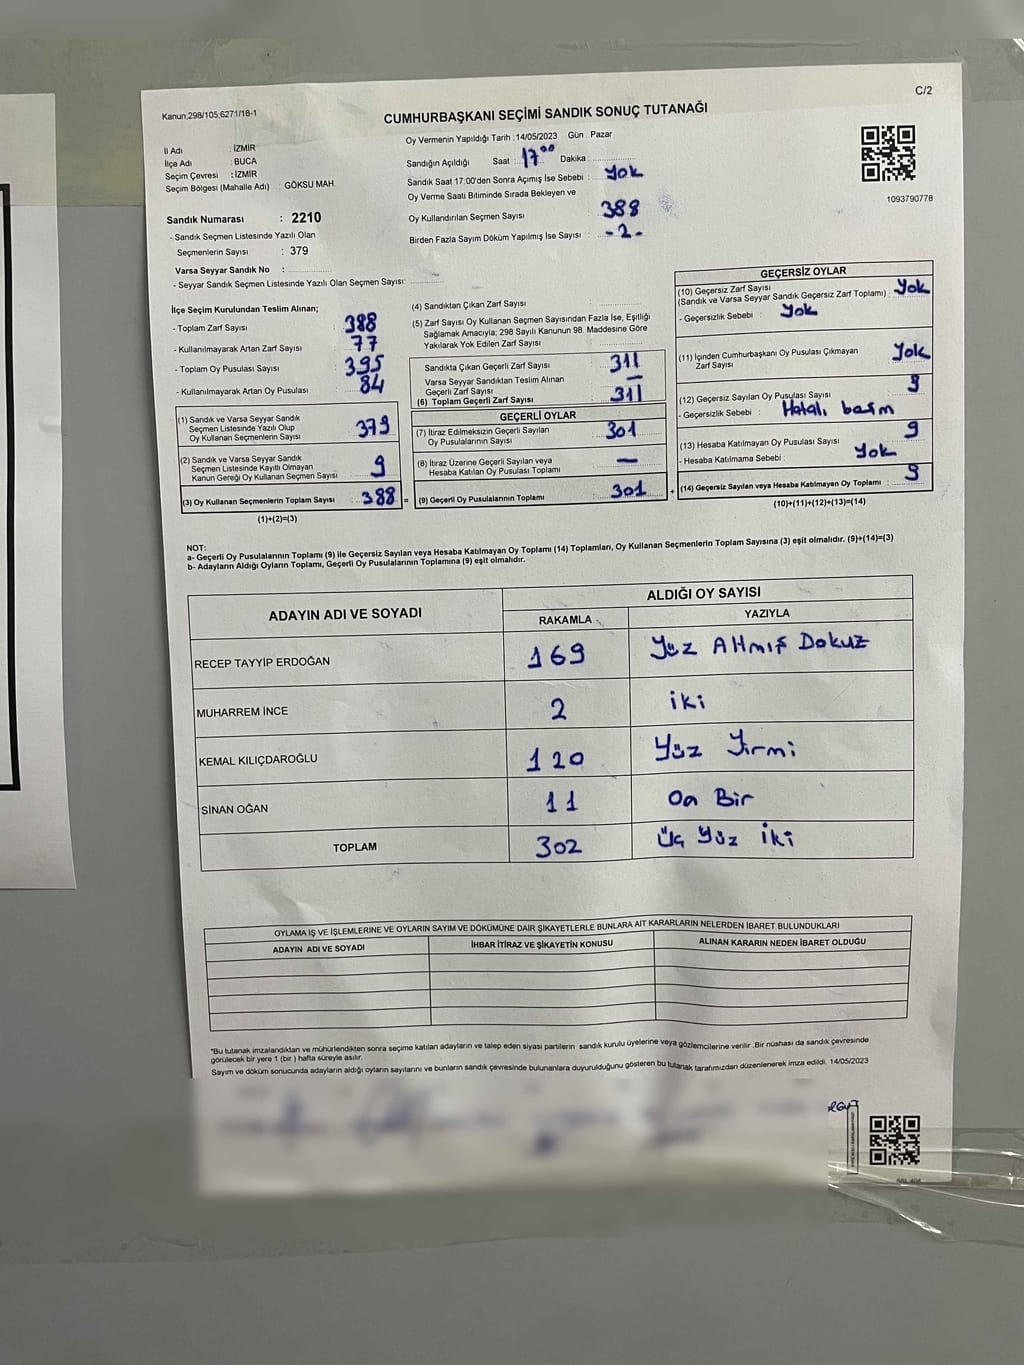 C/2
Kanun,298/105,6271/18-1
CUMHURBAŞKANI SEÇİMİ SANDIK SONUÇ TUTANAĞI
İl Adı : İZMİR
İlçe Adı : BUCA
Seçim Çevresi : İZMİR
Seçim Bölgesi (Mahalle Adı) : GÖKSU MAH.
Sandık Numarası : 2210
- Sandık Seçmen Listesinde Yazılı Olan
Seçmenlerin Sayısı : 379
Varsa Seyyar Sandık No :
- Seyyar Sandık Seçmen Listesinde Yazılı Olan Seçmen Sayısı:
Oy Vermenin Yapıldığı Tarih : 14/05/2023 Gün : Pazar
Sandığın Açıldığı Saat : 17⁰⁰ Dakika :
Sandık Saat 17:00'den Sonra Açımış İse Sebebi : Yok
Oy Verme Saati Bitiminde Sırada Bekleyen ve
Oy Kullandırılan Seçmen Sayısı 388
Birden Fazla Sayım Döküm Yapılmış İse Sayısı : -2-
1093790778
İlçe Seçim Kurulundan Teslim Alınan;
- Toplam Zarf Sayısı : 388
- Kullanılmayarak Artan Zarf Sayısı : 77
- Toplam Oy Pusulası Sayısı : 395
- Kullanılmayarak Artan Oy Pusulası : 84
(1) Sandık ve Varsa Seyyar Sandık
Seçmen Listesinde Yazılı Olup
Oy Kullanan Seçmenlerin Sayısı : 379
(2) Sandık ve Varsa Seyyar Sandık
Seçmen Listesinde Kayıtlı Olmayan
Kanun Gereği Oy Kullanan Seçmen Sayısı : 9
(3) Oy Kullanan Seçmenlerin Toplam Sayısı : 388 =
(1)+(2)=(3)
(4) Sandıktan Çıkan Zarf Sayısı :
(5) Zarf Sayısı Oy Kullanan Seçmen Sayısından Fazla İse, Eşitliği
Sağlamak Amacıyla, 298 Sayılı Kanunun 98. Maddesine Göre
Yakılarak Yok Edilen Zarf Sayısı :
Sandıkta Çıkan Geçerli Zarf Sayısı : 311
Varsa Seyyar Sandıktan Teslim Alınan
Geçerli Zarf Sayısı : —
(6) Toplam Geçerli Zarf Sayısı : 311
GEÇERLİ OYLAR
(7) İtiraz Edilmeksizin Geçerli Sayılan
Oy Pusulalarının Sayısı : 301
(8) İtiraz Üzerine Geçerli Sayılan veya
Hesaba Katılan Oy Pusulası Toplamı : —
(9) Geçerli Oy Pusulalarının Toplamı : 301 +
GEÇERSİZ OYLAR
(10) Geçersiz Zarf Sayısı
(Sandık ve Varsa Seyyar Sandık Geçersiz Zarf Toplamı) : Yok
- Geçersizlik Sebebi : Yok
(11) İçinden Cumhurbaşkanı Oy Pusulası Çıkmayan
Zarf Sayısı : Yok
(12) Geçersiz Sayılan Oy Pusulası Sayısı : 9
- Geçersizlik Sebebi : Hatalı basım
(13) Hesaba Katılmayan Oy Pusulası Sayısı : 9
- Hesaba Katılmama Sebebi : Yok
(14) Geçersiz Sayılan veya Hesaba Katılmayan Oy Toplamı : 9
(10)+(11)+(12)+(13)=(14)
NOT:
a- Geçerli Oy Pusulalarının Toplamı (9) ile Geçersiz Sayılan veya Hesaba Katılmayan Oy Toplamı (14) Toplamları, Oy Kullanan Seçmenlerin Toplam Sayısına (3) eşit olmalıdır. (9)+(14)=(3)
b- Adayların Aldığı Oyların Toplamı, Geçerli Oy Pusulalarının Toplamına (9) eşit olmalıdır.
ADAYIN ADI VE SOYADI ALDIĞI OY SAYISI
RAKAMLA YAZIYLA
RECEP TAYYİP ERDOĞAN 169 Yüz Altmış Dokuz
MUHARREM İNCE 2 iki
KEMAL KILIÇDAROĞLU 120 Yüz Yirmi
SİNAN OĞAN 11 On Bir
TOPLAM 302 Üç Yüz İki
OYLAMA İŞ VE İŞLEMLERİNE VE OYLARIN SAYIM VE DÖKÜMÜNE DAİR ŞİKAYETLERLE BUNLARA AİT KARARLARIN NELERDEN İBARET BULUNDUKLARI
ADAYIN ADI VE SOYADI İHBAR İTİRAZ VE ŞİKAYETİN KONUSU ALINAN KARARIN NEDEN İBARET OLDUĞU
"Bu tutanak imzalandıktan ve mühürlendikten sonra seçime katılan adayların ve talep eden siyasi partilerin sandık kurulu üyelerine veya gözlemcilerine verilir .Bir nüshası da sandık çevresinde
görülecek bir yere 1 (bir ) hafta süreyle asılır.
Sayım ve döküm sonucunda adayların aldığı oyların sayılarını ve bunların sandık çevresinde bulunanlara duyurulduğunu gösteren bu tutanak tarafımızdan düzenlenerek imza edildi. 14/05/2023